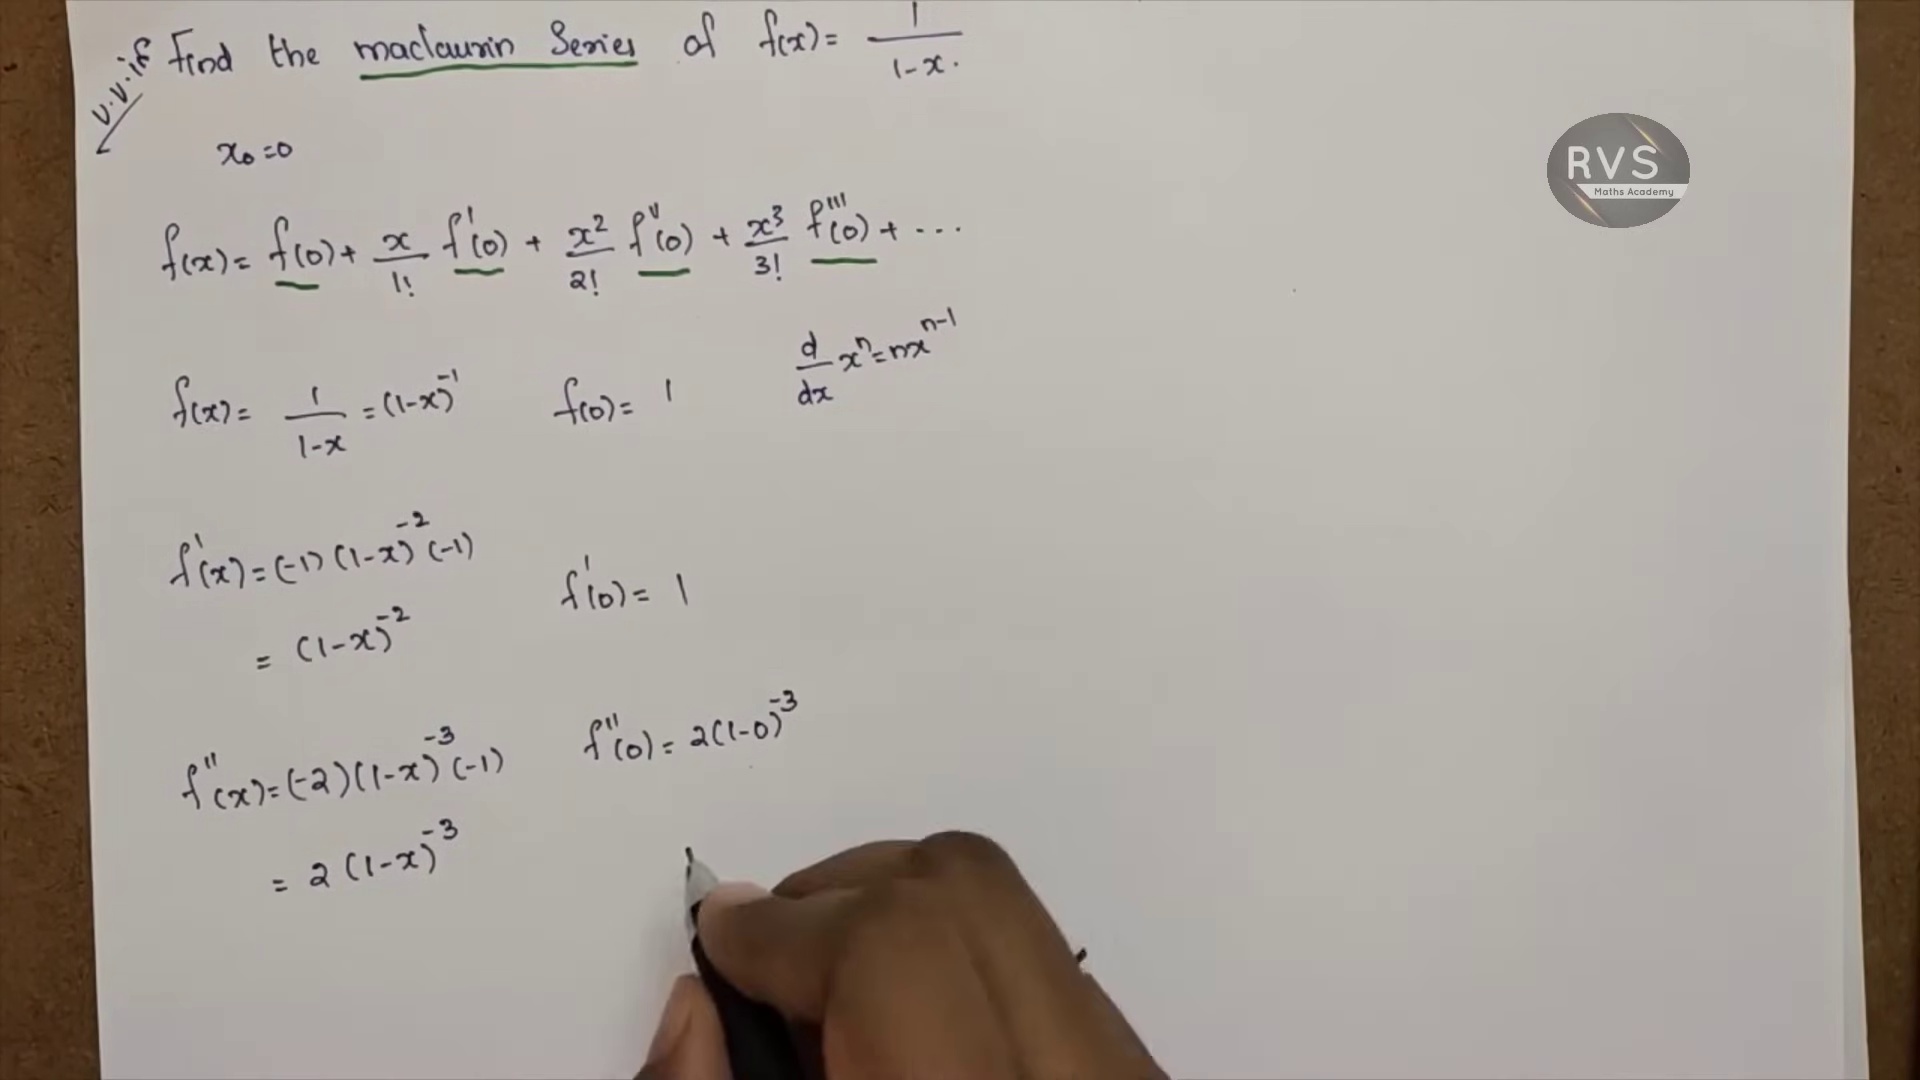 v.v.if Find the maclaurin Series of f(x) = 1/1-x.
x₀=0
f(x) = f(0) + x/1! f'(0) + x²/2! f''(0) + x³/3! f'''(0) + ...
f(x) = 1/1-x = (1-x)⁻¹ f(0) = 1 d/dx xⁿ = nxⁿ⁻¹
f'(x) = (-1)(1-x)⁻²(-1) f'(0) = 1
= (1-x)⁻²
f''(x) = (-2)(1-x)⁻³(-1) f''(0) = 2(1-0)⁻³
= 2(1-x)⁻³
RVS
Maths Academy